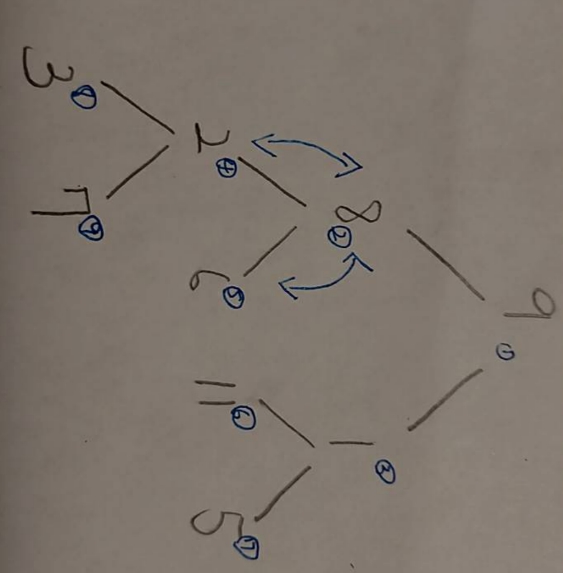 9 ①
8 ② 1 ③
2 ④ 6 ⑤ 11 ⑥ 5 ⑦
3 ⑧ 7 ⑨